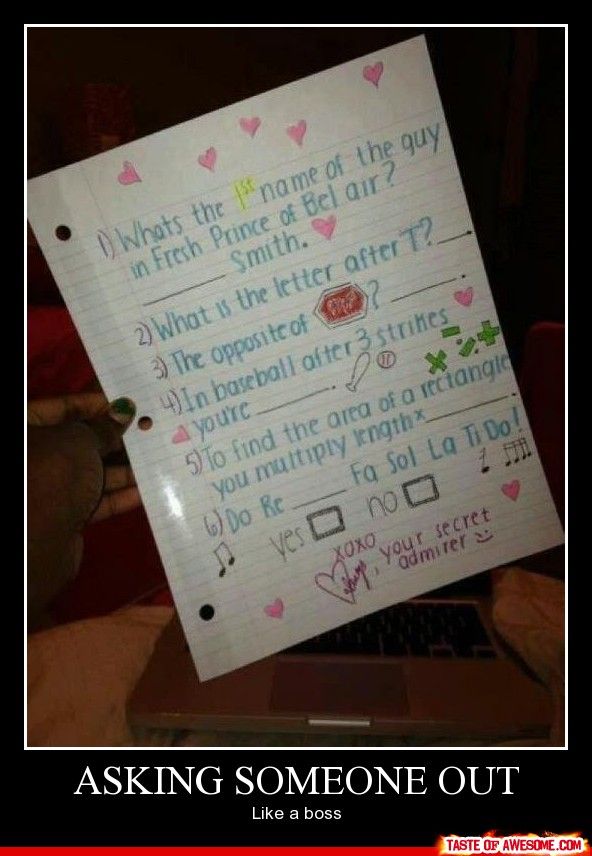 1) Whats the 1st name of the guy
in Fresh Prince of Bel air?
______ Smith.
2) What is the letter after T? ___
3) The opposite of STOP? ____.
4) In baseball after 3 strikes
you're ______.
5) To find the area of a rectangle
you multiply length x ______.
6) Do Re ____ Fa Sol La Ti Do!
yes no
xoxo
Always, your secret
admirer
ASKING SOMEONE OUT
Like a boss
TASTE OF AWESOME.COM